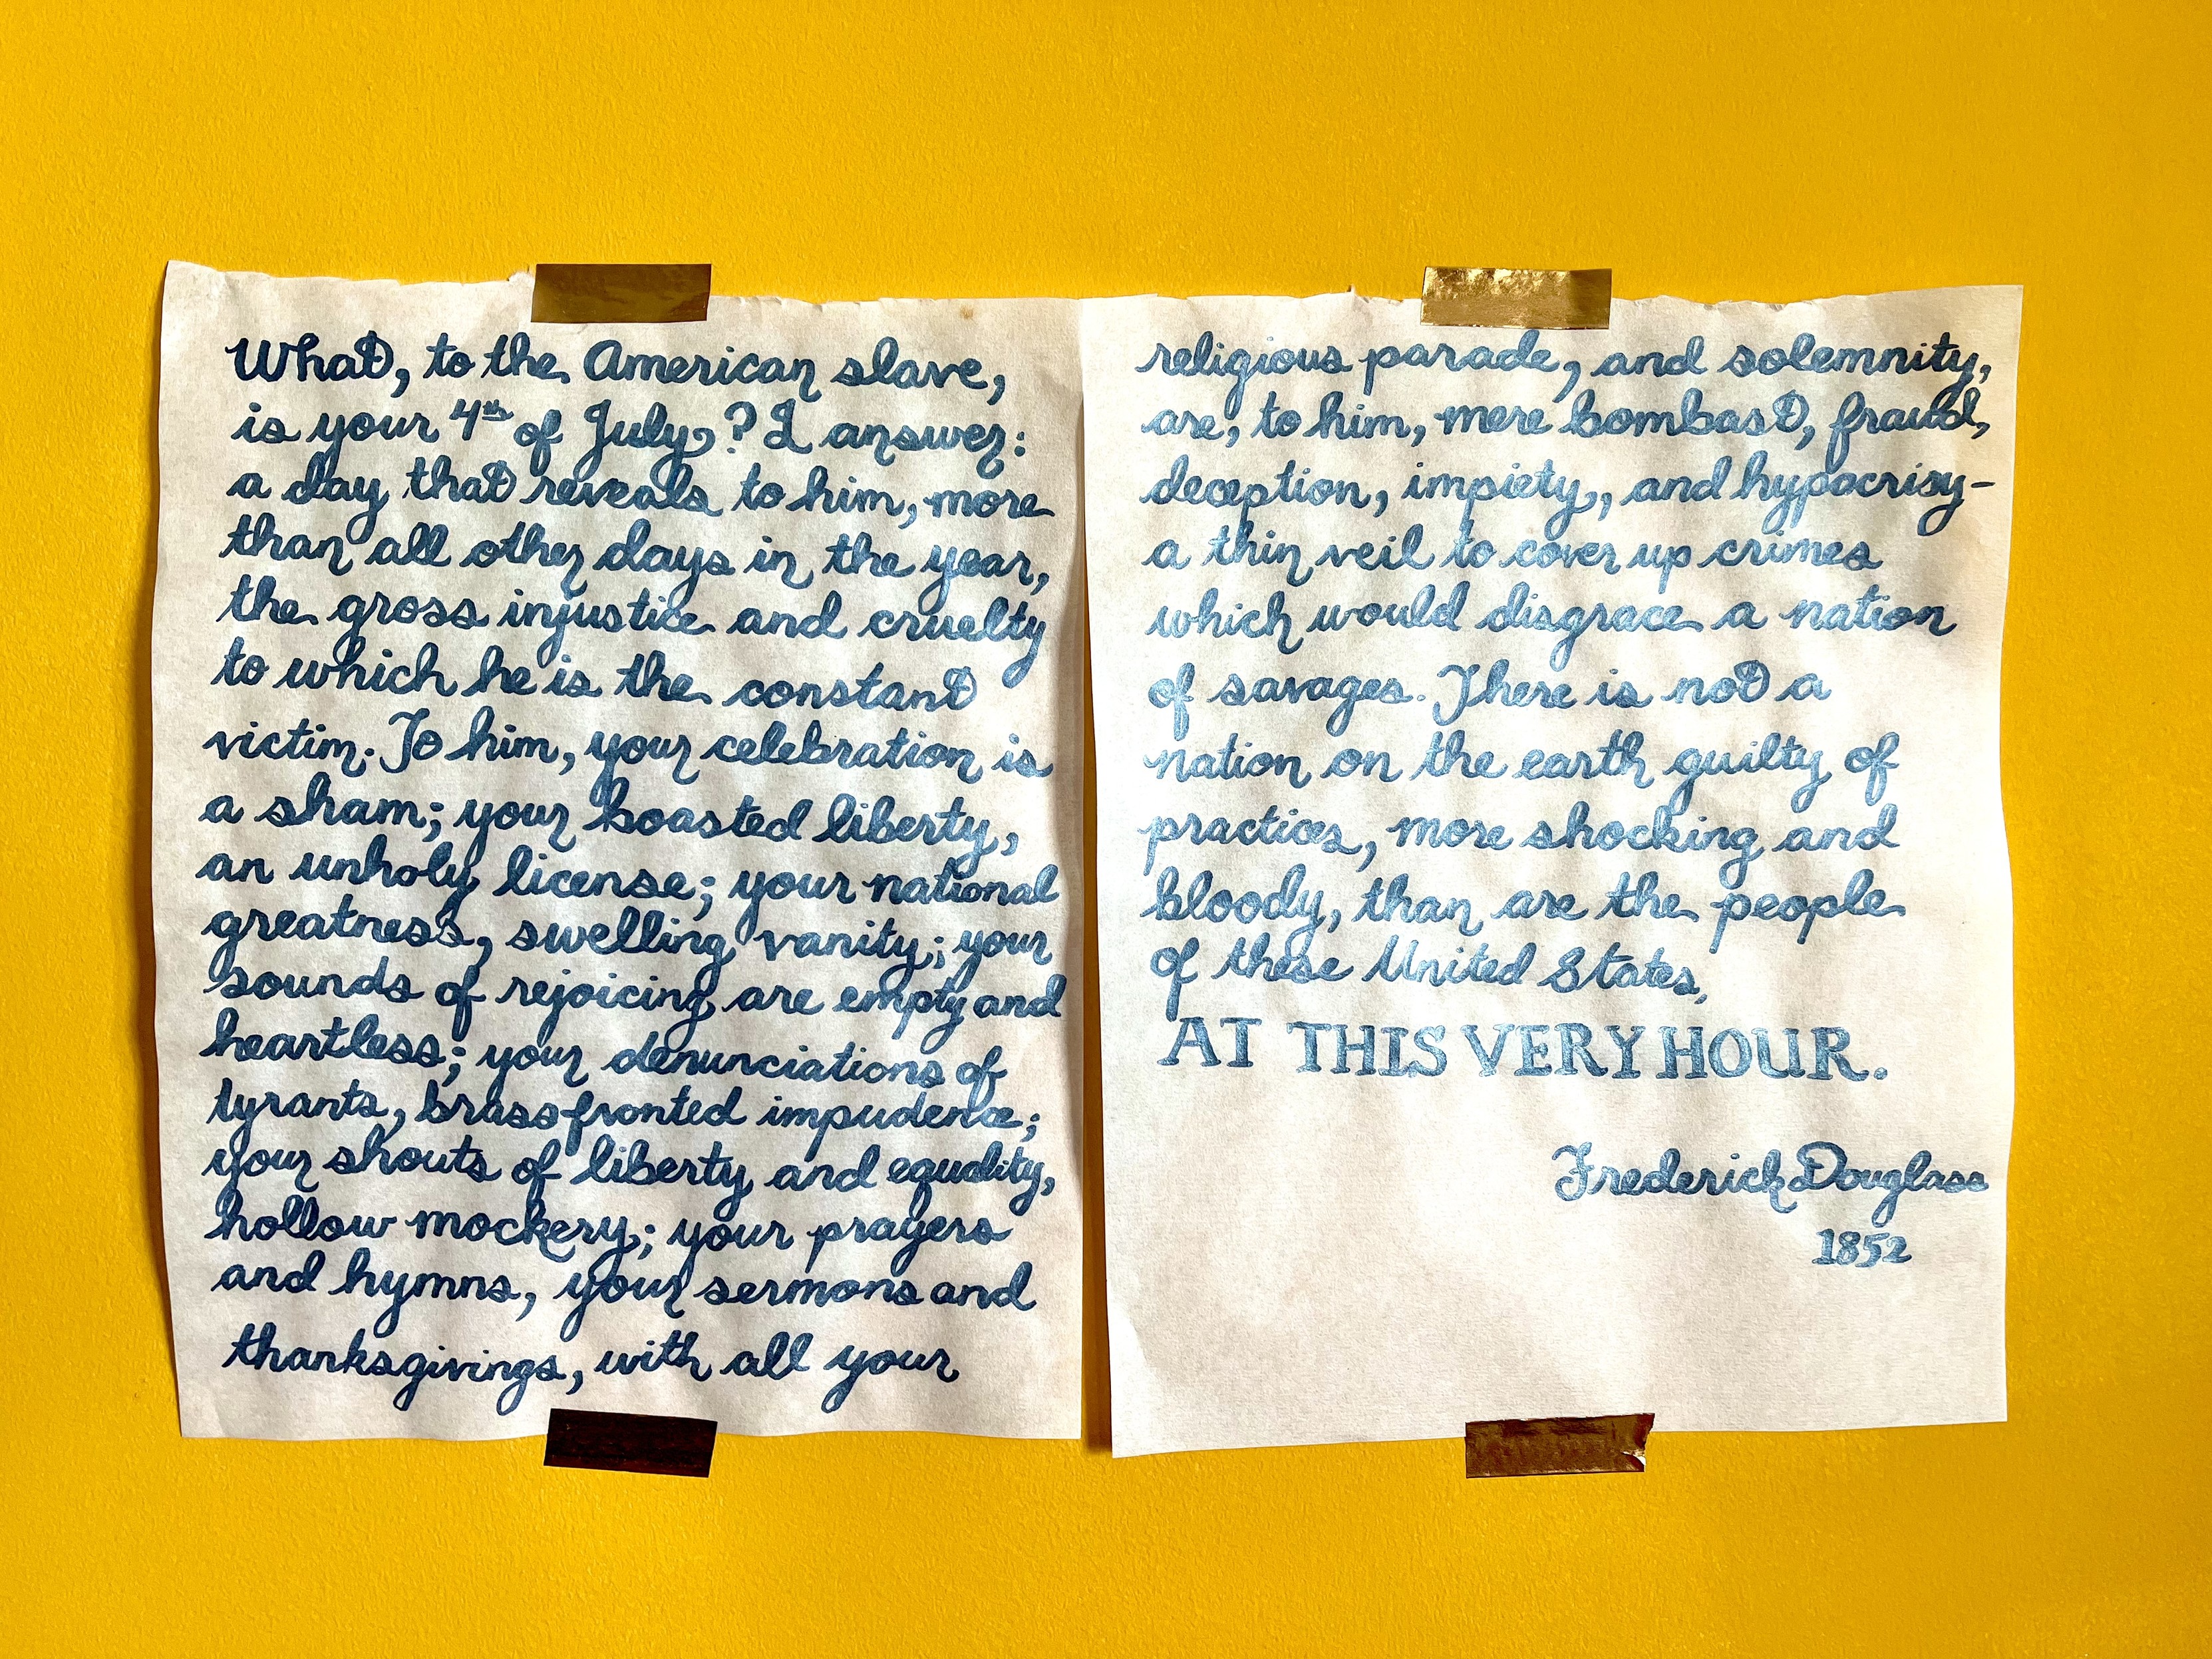 What, to the American slave,
is your 4th of July? I answer:
a day that reveals to him, more
than all other days in the year,
the gross injustice and cruelty
to which he is the constant
victim. To him, your celebration is
a sham; your boasted liberty,
an unholy license; your national
greatness, swelling vanity; your
sounds of rejoicing are empty and
heartless; your denunciations of
tyrants, brass fronted impudence;
your shouts of liberty and equality,
hollow mockery; your prayers
and hymns, your sermons and
thanksgivings, with all your
religious parade, and solemnity,
are, to him, mere bombast, fraud,
deception, impiety, and hypocrisy-
a thin veil to cover up crimes
which would disgrace a nation
of savages. There is not a
nation on the earth guilty of
practices, more shocking and
bloody, than are the people
of these United States,
AT THIS VERY HOUR.
Frederick Douglass
1852